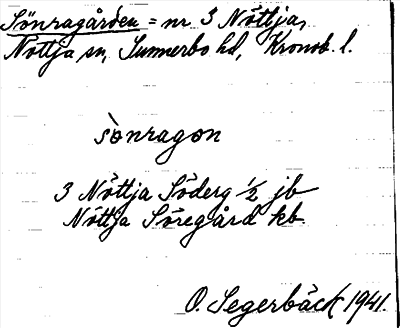 Sönragården = nr 3 Nöttja,
Nöttja sn, Sunnerbo hd, Kronob. l.
sònragon
3 Nöttja Söderg ½ jb
Nöttja Söregård kb.
O. Segerbäck 1941.